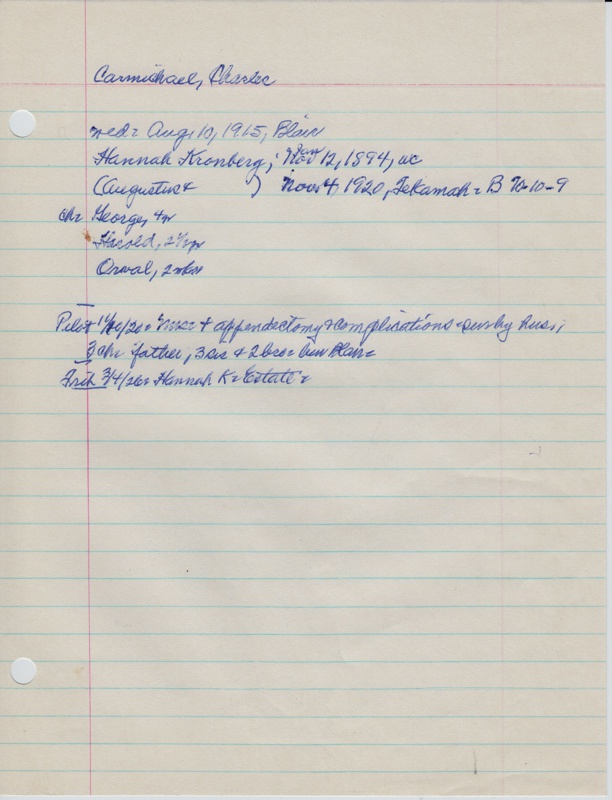 Carmichael, Charles
wed = Aug, 10, 1915, Blair
Hannah Kronberg, Jan 12, 1894, wc
(Augustus & ) Nov 4, 1920, Tekamah = B 70-10-9
ch = George, 4 yr
Harold, 2½ yr
Orval, 2 mos
Pilot 11/10/20 = Mrs. + appendectomy & complications = surv by hus;
3 ch = father, 3 sis & 2 bro = bur Blair =
Trib 3/4/26 = Hannah K = Estate =